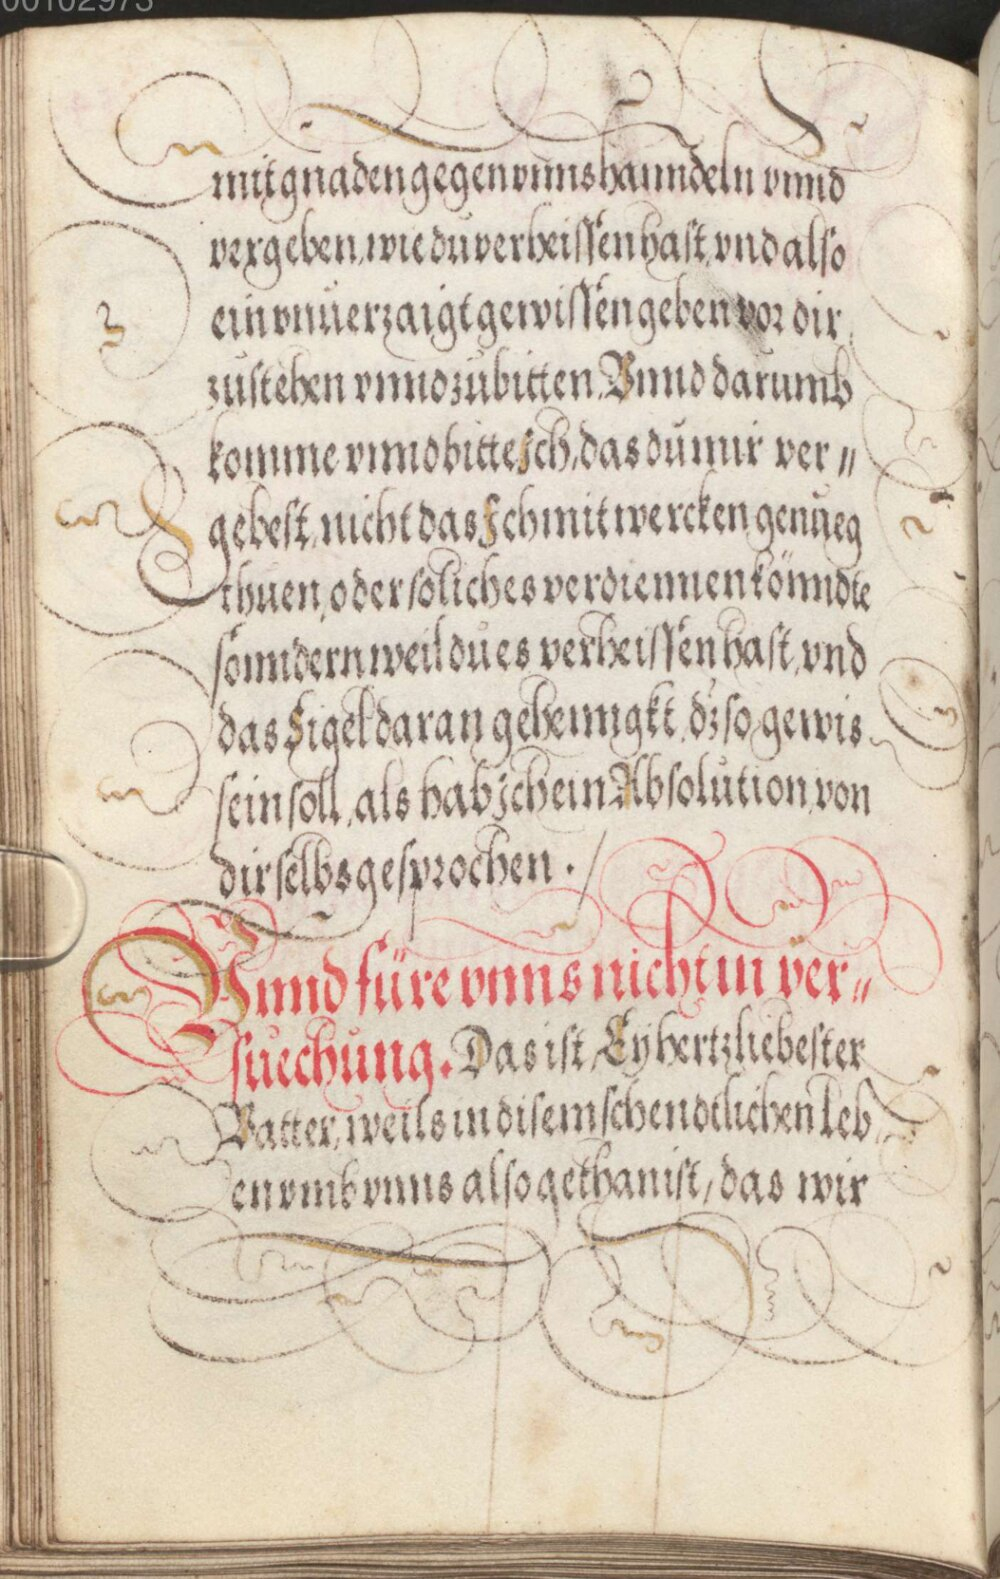 00102973
mit gnaden gegen vnns hanndeln vnnd
vergeben, wie du verheissen hast, vnd also
ein vnuerzaigt gewissen geben vor dir
zustehen vnnd zubitten. Vnnd darumb
komme vnnd bitte Jch, das du mir ver〃
gebest, nicht das Jch mit wercken genueg
thuen, oder soliches verdiennen könndte
sonndern weil du es verheissen hast, vnd
das Sigel daran gehenngkt, dz so gewis
sein soll, als hab Jch ein Absolution von
dir selbs gesprochen.
Vnnd füre vnns nicht in ver〃
suechung. Das ist, Ey hertzliebester
Vatter, weils in disem schendtlichen Leb
en vmb vnns also gethan ist, das wir